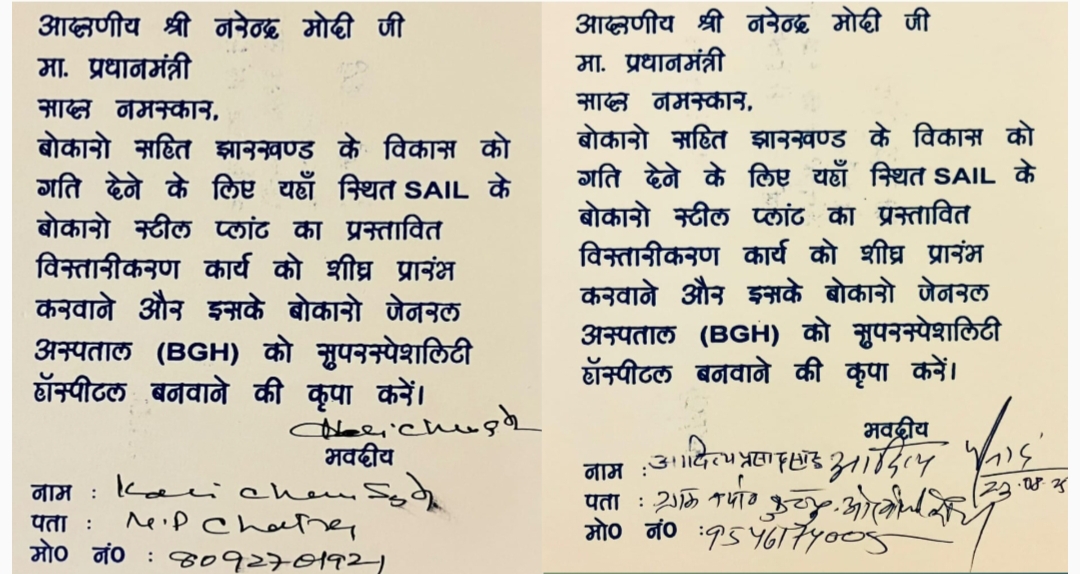 आदरणीय श्री नरेन्द्र मोदी जी
मा. प्रधानमंत्री
सादर नमस्कार,
बोकारो सहित झारखण्ड के विकास को
गति देने के लिए यहाँ स्थित SAIL के
बोकारो स्टील प्लांट का प्रस्तावित
विस्तारीकरण कार्य को शीघ्र प्रारंभ
करवाने और इसके बोकारो जेनरल
अस्पताल (BGH) को सुपरस्पेशलिटी
हॉस्पीटल बनवाने की कृपा करें।
भवदीय
नाम :
पता :
मो0 नं0 : 8092701921
आदरणीय श्री नरेन्द्र मोदी जी
मा. प्रधानमंत्री
सादर नमस्कार,
बोकारो सहित झारखण्ड के विकास को
गति देने के लिए यहाँ स्थित SAIL के
बोकारो स्टील प्लांट का प्रस्तावित
विस्तारीकरण कार्य को शीघ्र प्रारंभ
करवाने और इसके बोकारो जेनरल
अस्पताल (BGH) को सुपरस्पेशलिटी
हॉस्पीटल बनवाने की कृपा करें।
भवदीय
नाम : आदित्य
पता :
मो0 नं0 :